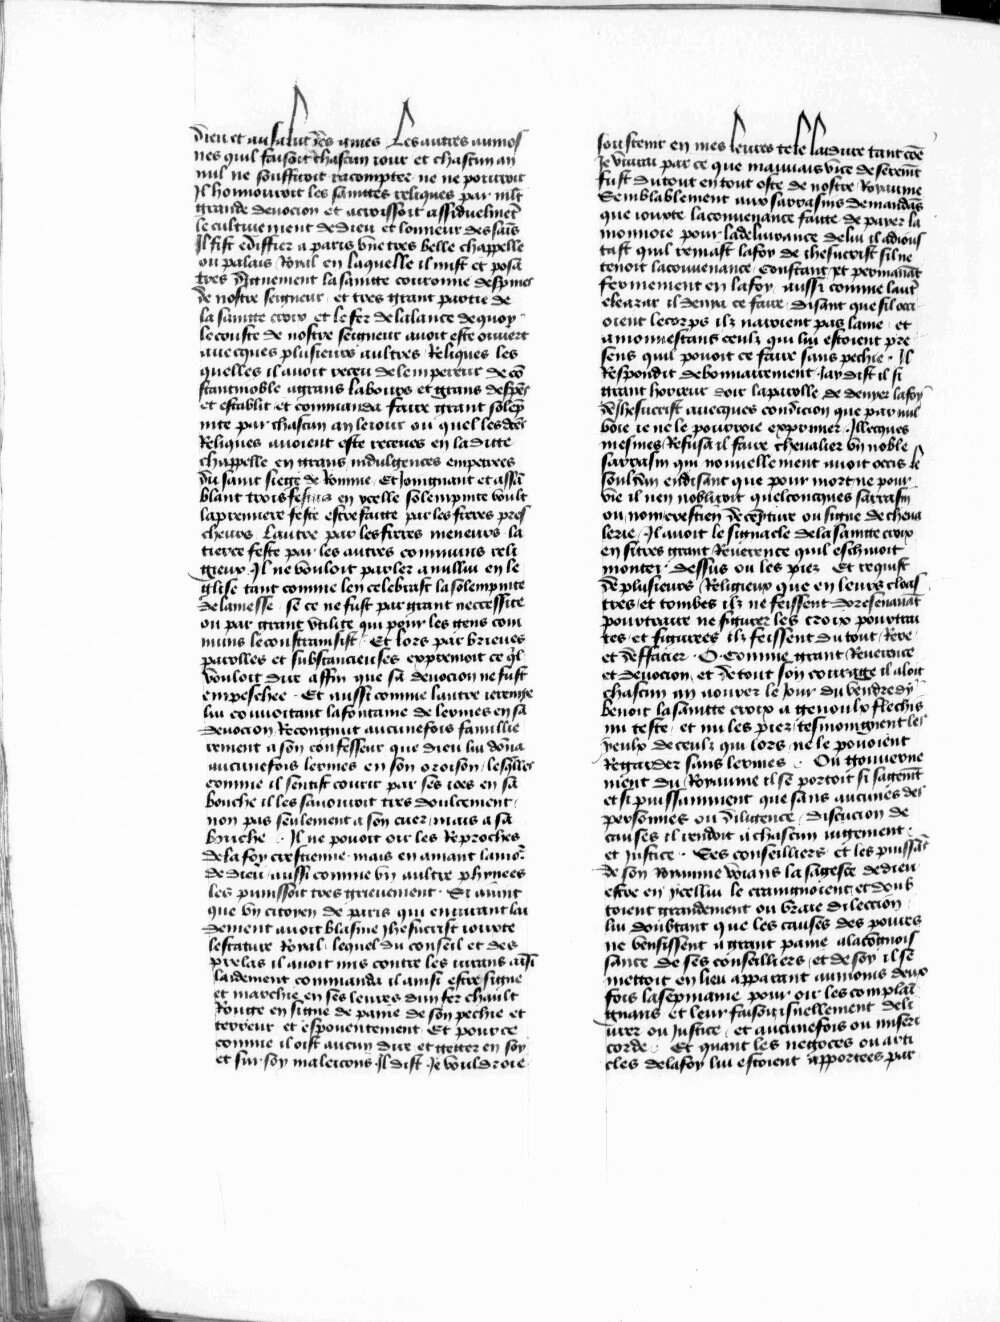 dieu et au salut des ames Les autres aumos
nes quil faisoit chascun iour et chascun an
nul ne souffiroit racompter ne ne pourroit
Il honnouroit les sainttes reliques par mlt
grande deuocion et acroissoit assiduelmet
le cultiuement de dieu et lonneur des sais
Il fist ediffier a paris vne tres belle chappelle
ou palais Royal en laquelle il mist et posa
tres dignement la saintte couronne despines
de nostre seigneur et tres grant partie de
la saintte croix et le fer de la lance de quoy
le couste de nostre seigneur auoit este ouuert
auecques plusieurs aultres Reliques les
quelles il auoit receu de lempereur de co
stantinoble a grans labours et grans despes
et establit et commanda faire grant solep
nite par chascun an le iour ou quel les des
Reliques auoient este receues en la ditte
chappelle en grans indulgences empetrees
du saint siege de Romme Et Joingnant et assa
blant trois festes en ycelle solempnite voult
la premiere feste estre faitte par les freres pres
cheurs Lautre par les freres meneurs la
tierce feste par les autres communs reli
gieux Il ne vouloit parler a nullui en le
glise tant comme len celebrast la solempnite
de la messe se ce ne fust par grant neccessite
ou par grant vtilite qui pour les gens com
muns le constrainsist Et lors par brieues
parolles et substancieuses exprimoit ce ql
vouloit dire affin que sa deuocion ne fust
empeschee Et aussi comme lautre ieremie
lui conuoitant la fontaine de lermes en sa
deuocion Recongnut aucunefois famillie
rement a son confesseur que dieu lui dona
aucunefois lermes en son oroison lesqlles
comme il sentist courir par ses ioes en sa
bouche il les sauouroit tres doulcement
non pas seulement a son cuer mais a sa
bouche Il ne pouoit oir les Reproches
de la foy crestienne mais en amant lamo
de dieu aussi comme vn aultre phynees
les punissoit tres griefuement Si auint
que vn citoyen de paris qui en iurant lai
dement auoit blasme jhesucrist contre
lestature Royal lequel du conseil et des
prelas il auoit mis contre les iurans aisi
laidement commanda il ainsi estre signe
et marchie en ses leures dun fer chault
Rouge en signe de paine de son pechie et
terreur et espouentement Et pour ce
comme il oist aucun dire et getter en soy
et sur soy maleicons Il dist Je vouldroie
soustenir en mes leures tele laidure tant coe
Je viuray par ce que mauuais vice de serement
fust du tout en tout oste de nostre Royaume
Semblablement aux sarrasins demandas
que iouxte la conuenance faitte de payer la
monnoie pour la deliurance de lui il adious
tast quil reniast la foy de ihesucrist sil ne
tenoit la conuenance Constant et permanat
fermement en la foy aussi comme lautr
eleazar il denya ce faire disant que sil occi
oient le corps ilz nauoient pas lame et
amonnestans ceulx qui lui estoient pre
sens quil pouoit ce faire sans pechie Il
Respondit debonnairement Jay dist il si
grant horreur doir la parolle de denyer la foy
de Jhesucrist auecques condicion que par nul
voie ie ne le pourroie exprimer Illecques
mesmes Refusa il faire cheualier vn noble
sarrasin qui nouuellement auoit occis le
souldan en disant que pour mort ne pour
vie il nen nobliroit quelconcques sarrasin
ou nom crestien de ceinture ou signe de cheua
lerie Il auoit le signacle de la saintte croix
en si tres grant Reuerence quil eschiuoit
monter dessus ou les piez Et requist
de plusieurs Religieux que en leurs clois
tres et tombes ilz ne feissent doresenauat
pourtraire ne figurer les croix pourtrai
tes et figurees ilz feissent du tout Rere
et deffacier O Comme grant Reuerence
et deuocion et de tout son courage il aloit
chascun an aourer le Jour du vendredy
benoit la saintte croix a genoulx flechis
nu teste et nu les piez tesmoingnent les
yeulx de ceulz qui lors ne le pouoient
Regarder sans lermes Ou gouuerne
ment du Royaume il se portoit si sagemet
et si puissamment que sans aucunes des
personnes ou diligence discucion de
causes il rendoit a chascun iugement
et Justice Ses conseilliers et les puissas
de son Royaume voians la sagesce de dieu
estre en ycellui le craingnoient et doub
toient grandement ou vraie dilection
lui doubtant que les causes des poures
ne venissent a grant paine a la congnois
sance de ses conseilliers et de soy il se
mettoit en lieu apparant au moins deux
fois la sepmaine pour oir les complai
gnans et leur faisoit isnellement deli
urer ou Justice et aucunefois ou miseri
corde Et quant les negoces ou arti
cles de la foy lui estoient apportees par